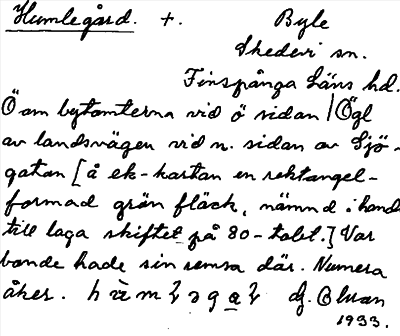 Humlegård. +. Byle
Skedevi sn.
Finspånga läns hd.
Ö om bytomterna vid ö sidan / Ögl
av landsvägen vid n. sidan av Sjö-
gatan [å ek-kartan en rektangel-
formad grön fläck, nämnd i handl
till laga skiftet på 80-talet.] Var
bonde hade sin remsa där. Numera
åker.
1933.